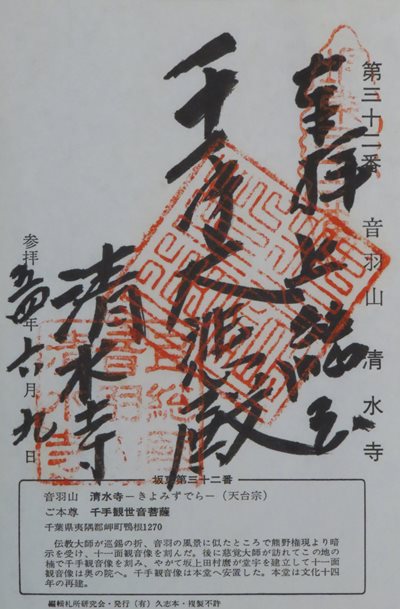 第三十二番 音羽山 清水寺
奉拝 上総国
千手大悲殿
清水寺
参拝 五四年六月九日
坂東第三十二番
音羽山 清水寺－きよみずでら－（天台宗）
ご本尊 千手観世音菩薩
千葉県夷隅郡岬町鴨根1270
伝教大師が巡錫の折、音羽の風景に似たところで熊野権現より暗
示を受け、十一面観音像を刻んだ。後に慈覚大師が訪れてこの地の
楠で千手観音像を刻み、やがて坂上田村麿が堂宇を建立して十一面
観音像は奥の院へ。千手観音像は本堂へ安置した。本堂は文化十四
年の再建。
編輯札所研究会・発行（有）久志本・複製不許